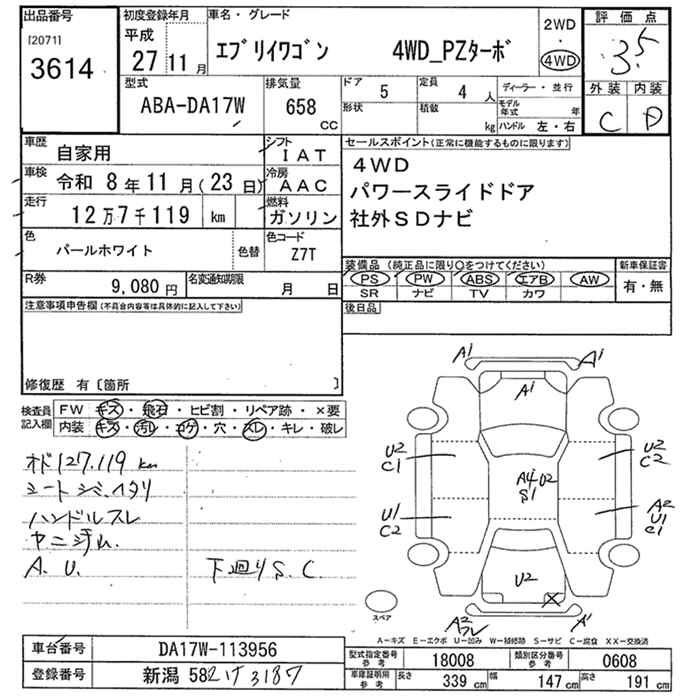 出品番号
[2071]
3614
初度登録年月
平成
27 11 月
車名・グレード
エブリイワゴン 4WD_PZターボ
2WD
・
4WD
評価点
3.5
外装 内装
C D
型式
ABA-DA17W
排気量
658
CC
ドア
5
形状
定員
4 人
積数
kg
ディーラー・並行
モデル年式 年
ハンドル 左・右
車歴
自家用
シフト
IAT
車検
令和 8年11月(23日)
冷房
AAC
走行
12万7千119 km
燃料
ガソリン
色
パールホワイト
色替
色コード
Z7T
R券
9,080 円
名変通知期限
月 日
セールスポイント(正常に機能するものに限ります)
4WD
パワースライドドア
社外SDナビ
装備品(純正品に限り○をつけてください)
PS PW ABS エアB AW
SR ナビ TV カワ
新車保証書
有・無
後日品
注意事項申告欄(不具合内容等は具体的に記入して下さい)
修復歴 有〔箇所 〕
検査員記入欄
FW キズ・飛石・ヒビ割・リペア跡・×要
内装 キズ・汚レ・コゲ・穴・スレ・キレ・破レ
オド127.119 km
シートシミ.ヘタリ
ハンドルスレ
ヤニ汚れ.
A. U. 下廻りS. C.
A1 A1
A1
U2
C1
U2
C2
A4 U2
S1
U1
C2
A2
U1
C1
U2
A2
フレ
A1
スペア
A-キズ E-エクボ U-凹み W-補修跡 S-サビ C-腐食 XX-交換済
車台番号 DA17W-113956
登録番号 新潟 582 け3187
型式指定番号
参考
18008
類別区分番号
参考
0608
車庫証明用
参考
長さ 339 cm 幅 147 cm 高さ 191 cm